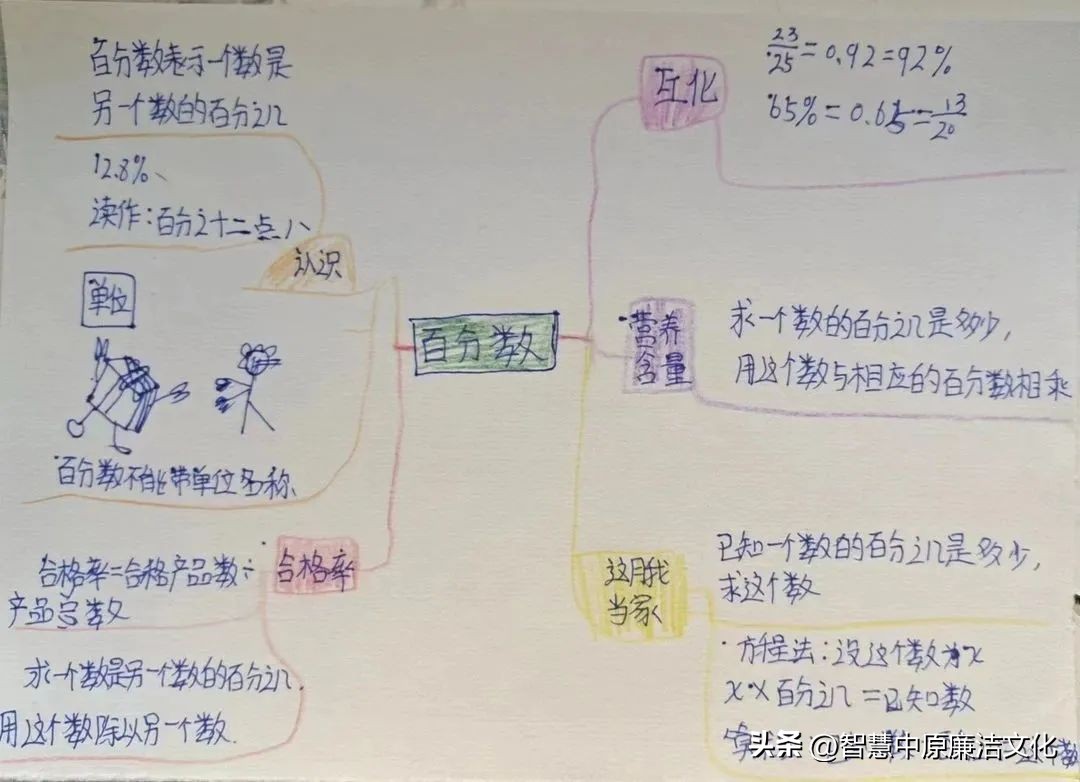 百分数
认识
百分数表示一个数是
另一个数的百分之几
12.8%、
读作:百分之十二点八
单位
百分数不能带单位名称、
合格率
合格率=合格产品数÷
产品总数
求一个数是另一个数的百分之几,
用这个数除以另一个数.
互化
23/25=0.92=92%
65%=0.65=13/20
营养
含量
求一个数的百分之几是多少,
用这个数与相应的百分数相乘
这月我
当家
已知一个数的百分之几是多少,
求这个数
·方程法:设这个数为x
x×百分之几=已知数
头条 @智慧中原廉洁文化